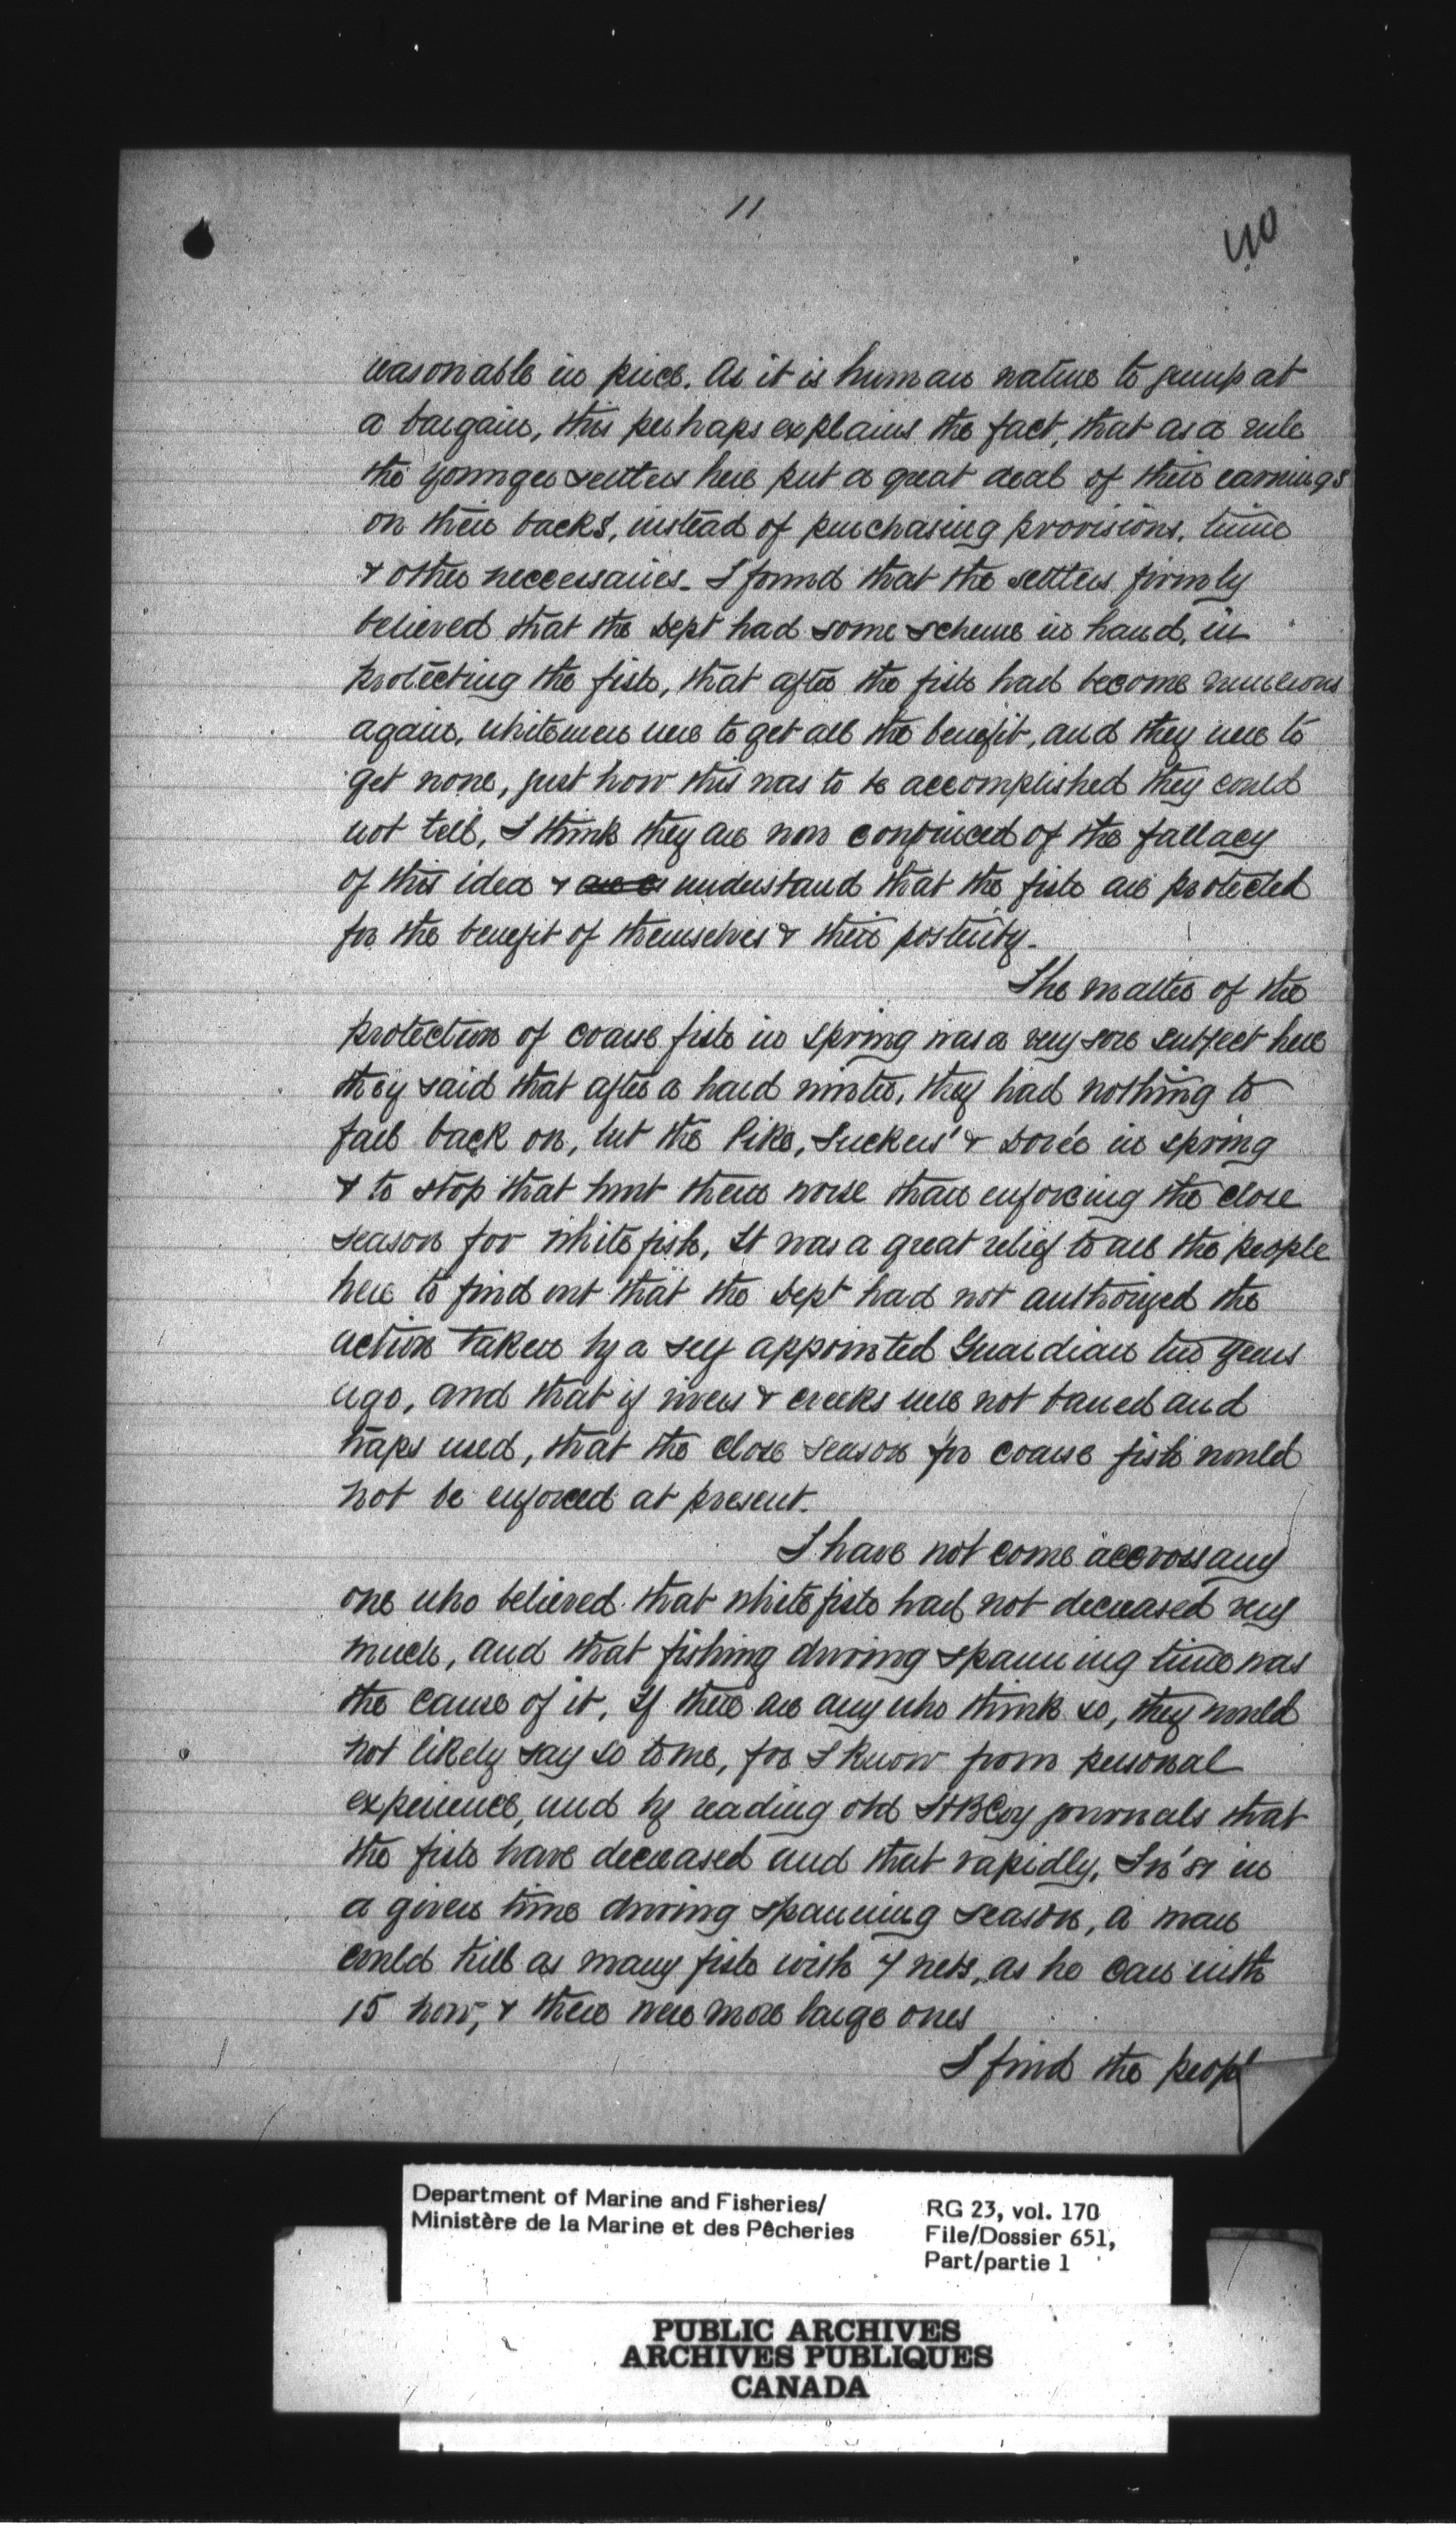 11
40
reasonable in price. As it is human nature to jump at
a bargain, this perhaps explains the fact, that as a rule
the younger settlers here put a great deal of their earnings
on their backs, instead of purchasing provisions, twine
& other neccessaries. I found that the settlers firmly
believed that the Dept had some scheme in hand, in
protecting the fish, that after the fish had become numerous
again, whitemen were to get all the benefit, and they were to
get none, just how this was to be accomplished they could
not tell, I think they are now convinced of the fallacy
of this idea & understand that the fish are protected
for the benefit of themselves & their posterity.
The matter of the
protection of coarse fish in spring was a very sore subject here
they said that after a hard winter, they had nothing to
fall back on, but the Pike, Suckers' & Dorée in spring
& to stop that hurt them worse than enforcing the close
season for whitefish, It was a great relief to all the people
here to find out that the Dept had not authorized the
action taken by a self appointed Guardian two years
ago, and that if rivers & creeks were not barred and
traps used, that the close season for coarse fish would
not be enforced at present.
I have not come accross any
one who believed that whitefish had not decreased very
much, and that fishing during spawning time was
the cause of it, If there are any who think so, they would
not likely say so to me, for I know from personal
experience, and by reading old HBCoy journals that
the fish have decreased and that rapidly, In '81 in
a given time during spawning season, a man
could kill as many fish with 7 nets, as he can with
15 now, & there were more large ones
I find the peopl
Department of Marine and Fisheries/
Ministère de la Marine et des Pêcheries
RG 23, vol. 170
File/Dossier 651,
Part/partie 1
PUBLIC ARCHIVES
ARCHIVES PUBLIQUES
CANADA